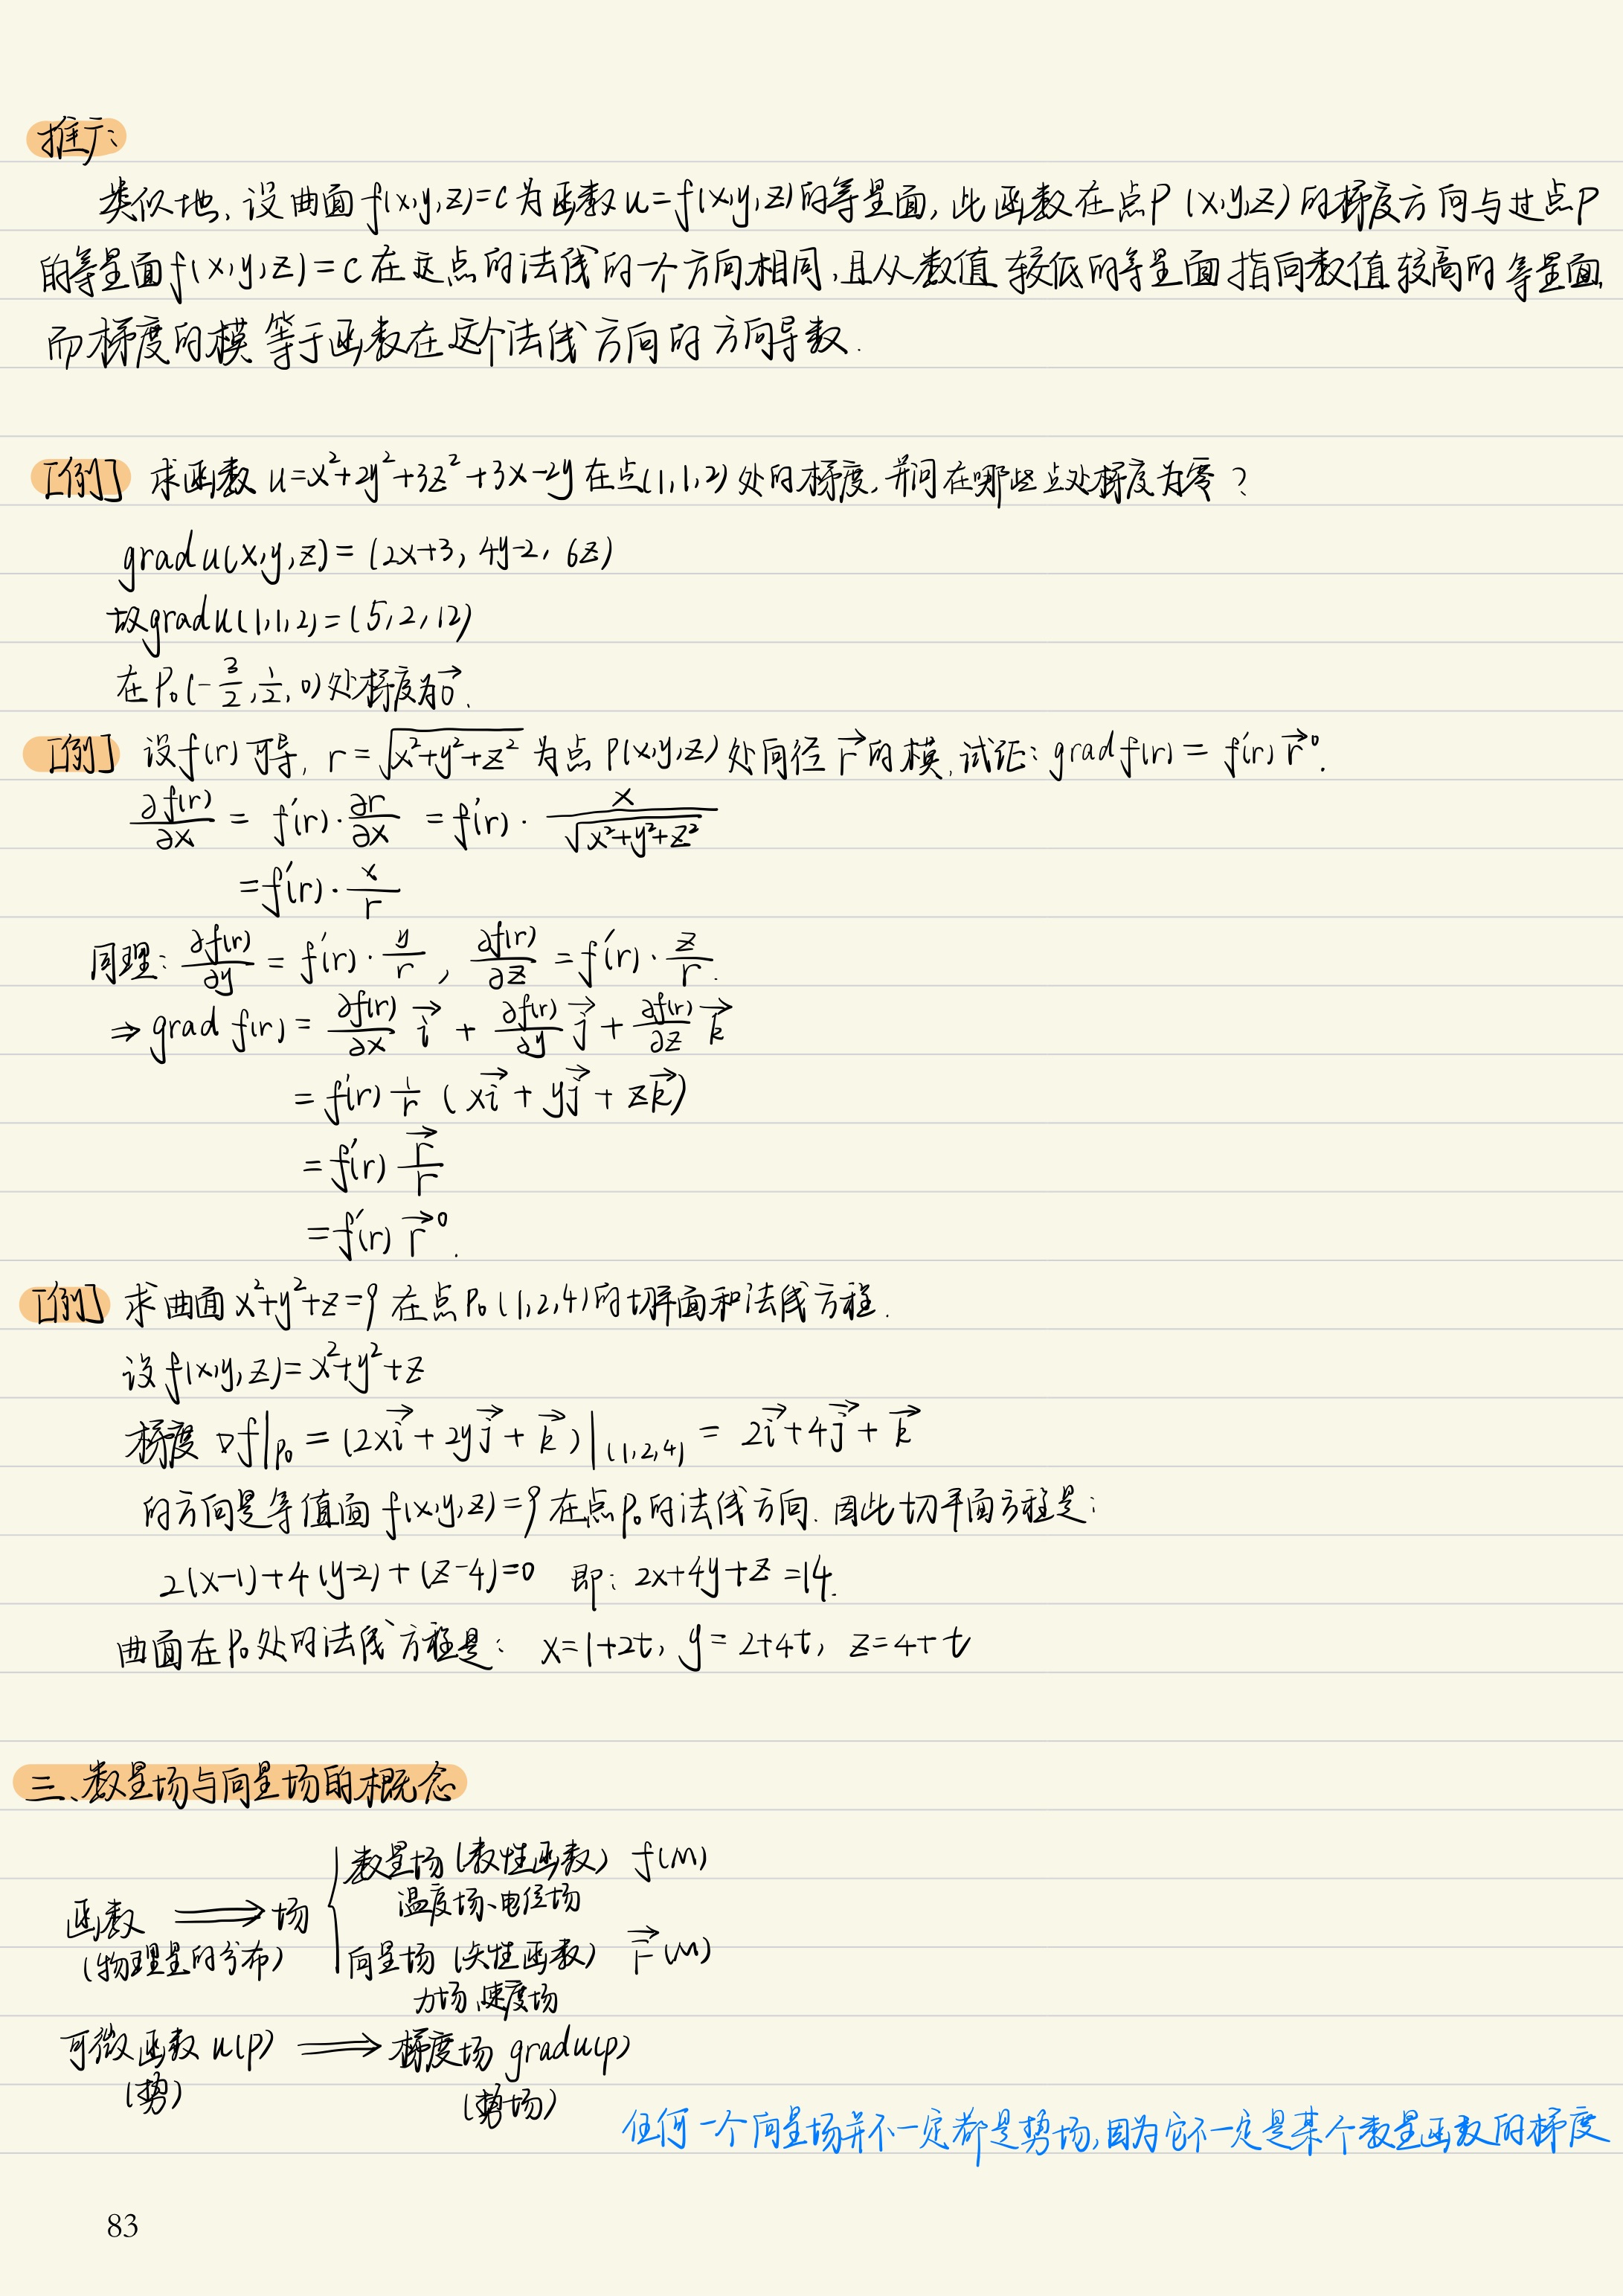 推广:
类似地,设曲面 f(x,y,z)=c 为函数 u=f(x,y,z) 的等量面,此函数在点P (x,y,z) 的梯度方向与过点P
的等量面 f(x,y,z)=c 在这点的法线的一个方向相同,且从数值较低的等量面指向数值较高的等量面,
而梯度的模等于函数在这个法线方向的方向导数.
[例] 求函数 u=x²+2y²+3z²+3x-2y 在点(1,1,2)处的梯度,并问在哪些点处梯度为零?
grad u(x,y,z) = (2x+3, 4y-2, 6z)
故grad u(1,1,2) = (5,2,12)
在 P₀(-3/2, 1/2, 0)处梯度为0⃗.
[例] 设f(r)可导, r=√(x²+y²+z²) 为点 P(x,y,z) 处向径 r⃗ 的模,试证: grad f(r) = f'(r) r⃗⁰.
∂f(r)/∂x = f'(r)·∂r/∂x = f'(r)·x/√(x²+y²+z²)
=f'(r)·x/r
同理: ∂f(r)/∂y = f'(r)·y/r, ∂f(r)/∂z = f'(r)·z/r.
⇒ grad f(r) = ∂f(r)/∂x i⃗ + ∂f(r)/∂y j⃗ + ∂f(r)/∂z k⃗
= f'(r) 1/r (xi⃗ + yj⃗ + zk⃗)
= f'(r) r⃗/r
= f'(r) r⃗⁰.
[例] 求曲面 x²+y²+z=9 在点 P₀(1,2,4)的切平面和法线方程.
设 f(x,y,z)=x²+y²+z
梯度 ∇f|P₀ = (2xi⃗ + 2yj⃗ + k⃗)|(1,2,4) = 2i⃗+4j⃗+k⃗
的方向是等值面 f(x,y,z)=9 在点P₀的法线方向.因此切平面方程是:
2(x-1)+4(y-2)+(z-4)=0 即: 2x+4y+z=14.
曲面在P₀处的法线方程是: x=1+2t, y=2+4t, z=4+t
三、数量场与向量场的概念
数量场(数性函数) f(M)
温度场、电位场
函数 ⟹ 场
(物理量的分布)
向量场 (矢性函数) r⃗(M)
力场、速度场
可微函数 u(P) ⟹ 梯度场 grad u(P)
(势) (势场)
任何一个向量场并不一定都是势场,因为它不一定是某个数量函数的梯度
83